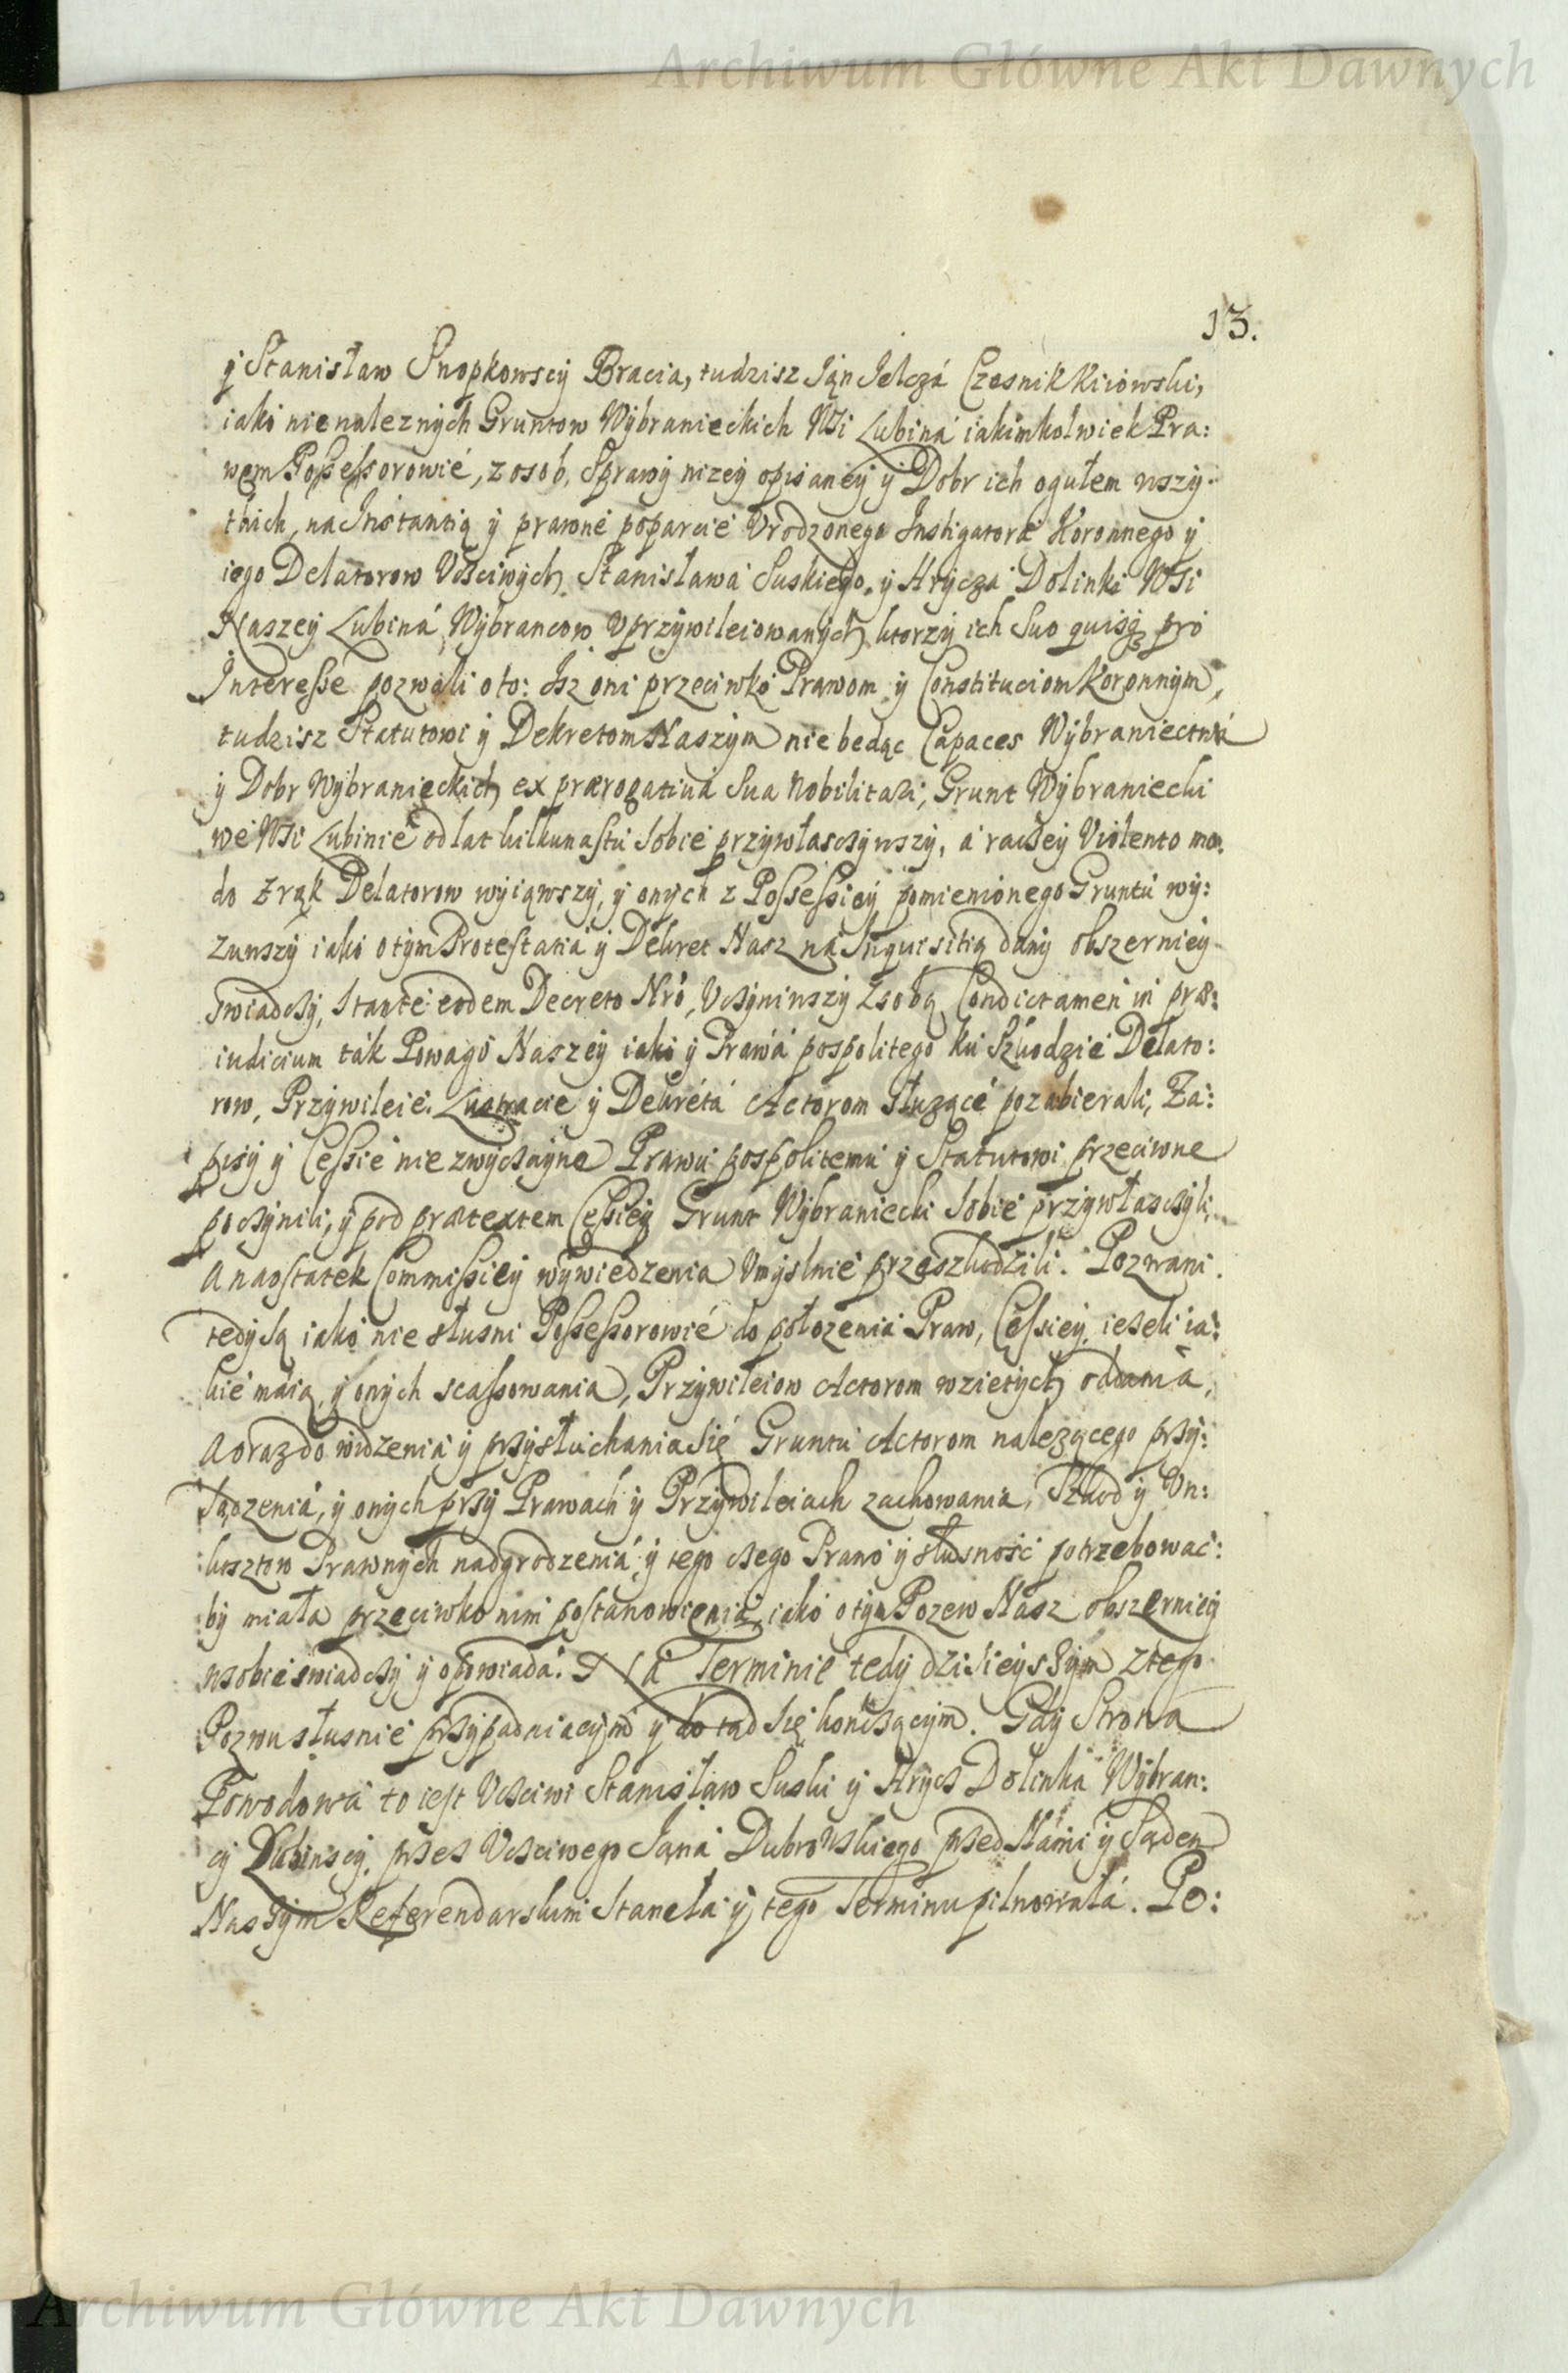 Archiwum Główne Akt Dawnych
13.
ÿ Stanisław Snopkowscÿ Bracia, tudzisz Ján Jelczá Czesnik Kiiowski,
iako nienaleznÿch Gruntow Wÿbranieckich Wsi Lubiná iakimkolwiek Pra:
wem Possessorowié, z osob, Sprawÿ nizeÿ opisaneÿ ÿ Dobr ich ogułem wszÿ:
tkich, na Instantią ÿ prawné poparcié Urodzonego Instigatora Koronnego ÿ
iego Delatorow Ucsciwÿch Stanisława Suskiego, ÿ Hrÿcza Dolinki Wsi
Naszeÿ Lubiná, Wÿbrancow Uprzÿwileiowanÿch ktorzÿ ich Suo quisq pro
Interesse pozwali oto: Isz oni przeciwko Prawom ÿ Constituciom Koronnÿm,
tudzisz Statutowi ÿ Dekretom Naszÿm nie bedąc Capaces Wÿbraniectwá
ÿ Dobr Wÿbranieckich ex prærogatiua Sua Nobilitatis, Grunt Wÿbraniecki
wé Wsi Lubinié od lat kilkunastu Sobié przÿwłascsÿwszÿ, a racseÿ Violento mo:
do z rąk Delatorow wÿiąwszÿ, ÿ onÿch z Possessieÿ pomienionego Gruntu wÿ:
zuwszÿ iako otÿm Protestatia ÿ Dekret Nasz na Inquisitią danÿ obszernieÿ
swiadcsÿ, Stanté eodem Decreto Nrö, Ucsÿniwszÿ z sobą Condictamen in præ:
iudicium ták Powagi Naszeÿ iako ÿ Prawá pospolitego ku Szkodzié Delato:
row, Przÿwileié, Lustracie ÿ Dekretá Actorom służącé pozabierali, Za:
pisÿ ÿ Cessié nie zwÿcsaÿne Prawu pospolitemu ÿ Statutowi przeciwne
pocsÿnili, ÿ pod prætextem Cessieÿ Grunt Wÿbraniecki Sobié przÿwłascsÿli,
A naostatek Commissieÿ wÿwiedzenia Umÿslnié przeszkodzili. Pozwani
tedÿ są iako nie słusni Possessorowié do położenia Praw, Cessieÿ, ieseli ia:
kié máią, ÿ onÿch scassowania, Przÿwileiow Actorom wzietÿch oddania,
A oraz do widzenia ÿ prsÿsłuchania się Gruntu Actorom należącego prsÿ:
sądzeniá, ÿ onÿch prsÿ Prawach ÿ Przÿwileiach zachowania, Szkod ÿ Un:
kosztow Prawnÿch nadgrodzeniá, ÿ tego csego Prawo ÿ słusność potrzebowac:
bÿ miała przeciwko nim postanowienia, iako otÿm Pozew Nasz obszernieÿ
wsobié swiadcsÿ ÿ opowiada. Na Terminié tedÿ dzisieÿssÿm z tego
Pozwu słusnié prsÿpadaiącÿm ÿ do tąd się koncsącÿm. Gdÿ Strona
Powodowa to iest Ucsciwi Stanisław Suski ÿ Hrÿcs Dolinka Wÿbran:
cÿ Lubinscÿ, prses Ucsciwego Jana Dubrowskiego prsed Nami ÿ Sądem
Nassÿm Referendarskim Staneła ÿ tego Terminu pilnowałá. Po:
Archiwum Główne Akt Dawnych